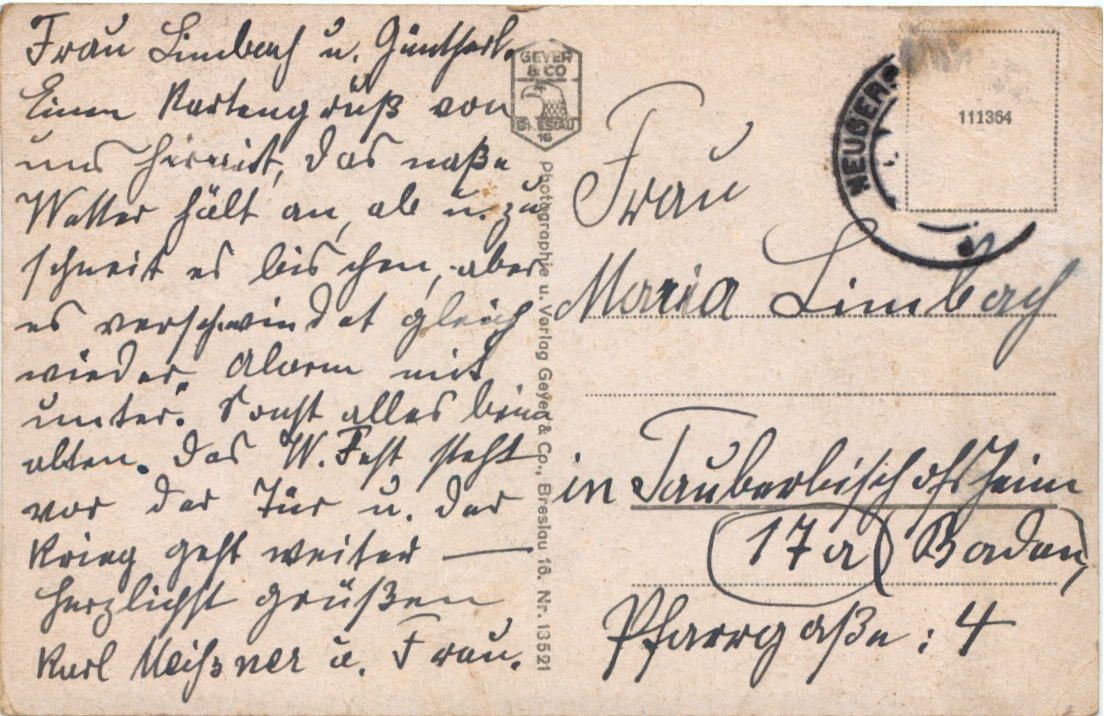 Frau Limbach u. Güntherl.
Einen Kartengruß von
uns hiermit, das naße
Wetter hält an, ab u. zu
schneit es bis chen, aber
es verschwindet gleich
wieder. Alarm mit
unter. Sonst alles beim
alten. Das W. Fest steht
vor der Tür u. der
Krieg geht weiter —
Herzlichst grüßen
Karl Meißner u. Frau.
GEYER
& CO
BRESLAU
16
Photographie u. Verlag Geyer & Co., Breslau 16. Nr. 13521
111364
Frau
Maria Limbach
in Tauberbischofsheim
(17a) Baden,
Pfarrgaße: 4